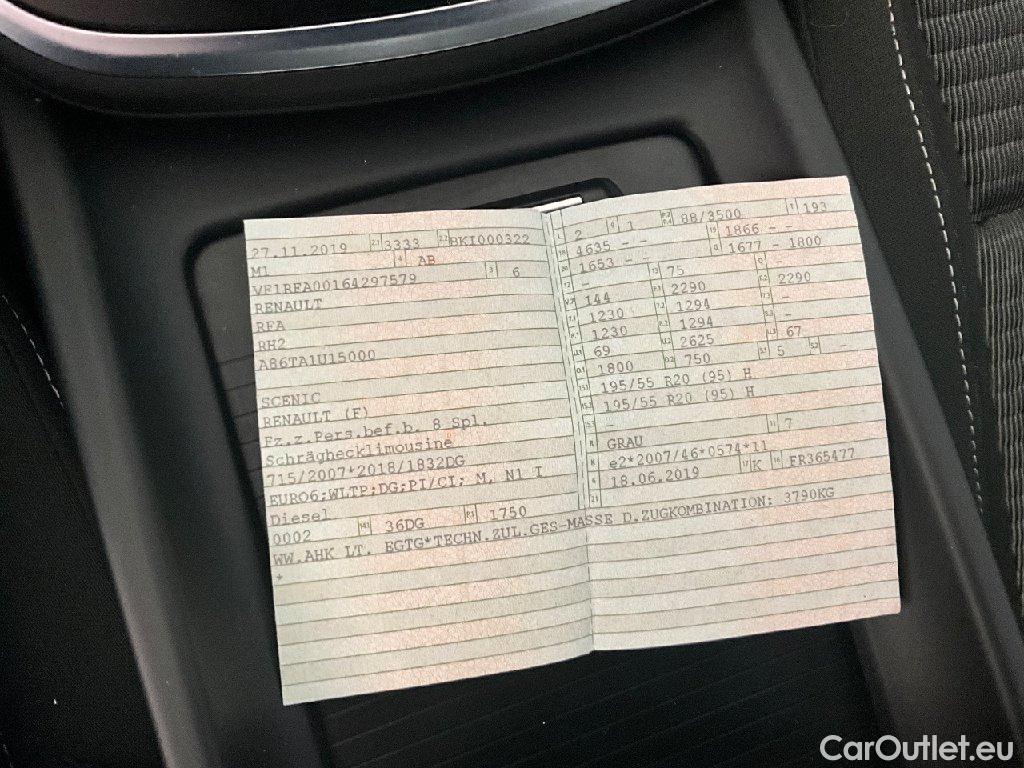 27.11.2019 2.1 3333 2.2 BKI000322
M1 4 AB
VF1RFA00164297579 3 6
RENAULT
RFA
RH2
A86TA1U15000
SCENIC
RENAULT (F)
Fz.z.Pers.bef.b. 8 Spl.
Schräghecklimousine
715/2007*2018/1832DG
EURO6;WLTP;DG;PI/CI; M, N1 I
Diesel
0002 14.1 36DG P.1 1750
WW.AHK LT. EGTG*TECHN.ZUL.GES-MASSE D.ZUGKOMBINATION: 3790KG
*
2 1 88/3500 193
4635 - - 1866 - -
1653 - - 1677 - 1800
- 75 -
144 2290 2290
1230 1294 -
1230 1294 -
69 2625 67
1800 750 5 -
195/55 R20 (95) H
195/55 R20 (95) H
-
GRAU 7
e2*2007/46*0574*11
18.06.2019 K FR365477
CarOutlet.eu